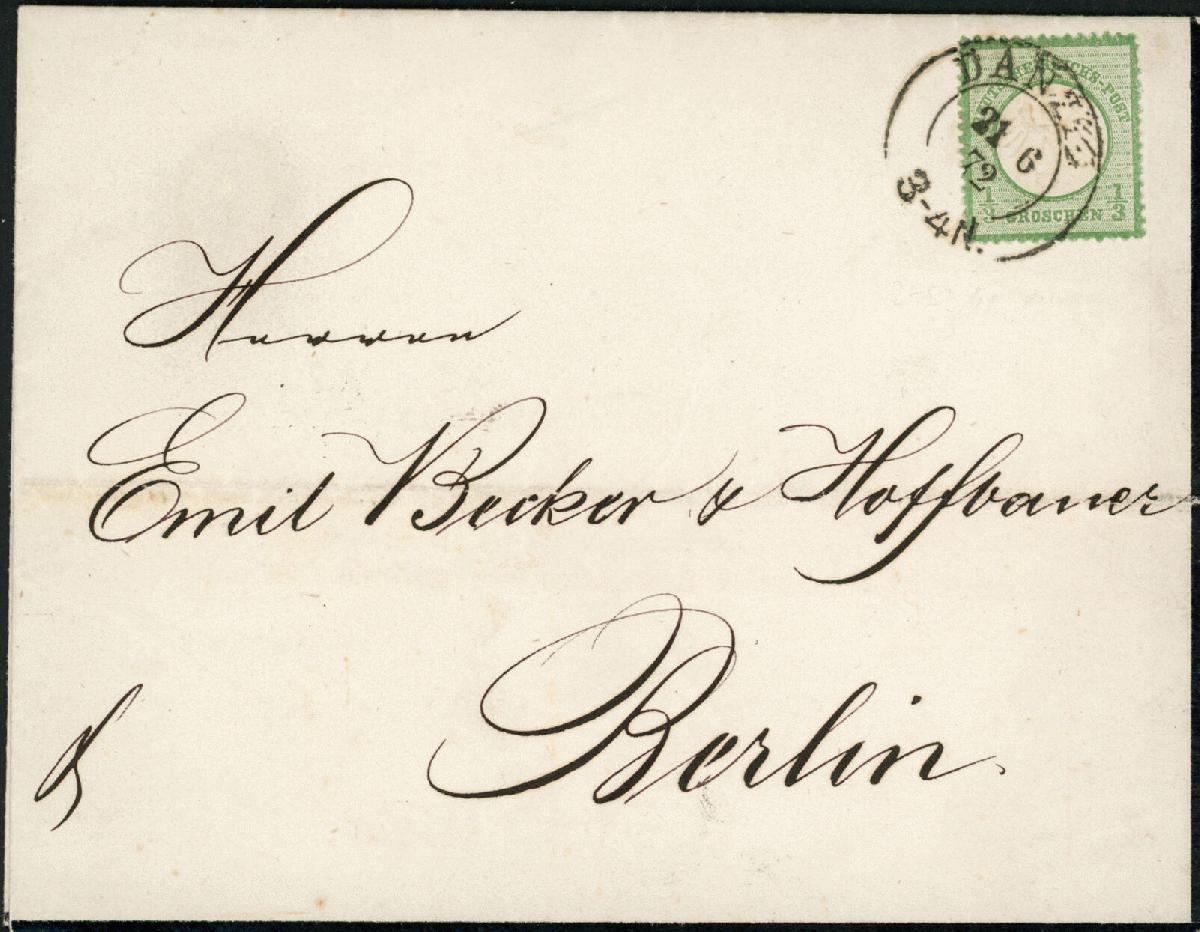 DANZIG
21 6
72
3-4N.
REICHS-POST
1/3 GROSCHEN 1/3
Herren
Emil Becker & Hoffbauer
Berlin